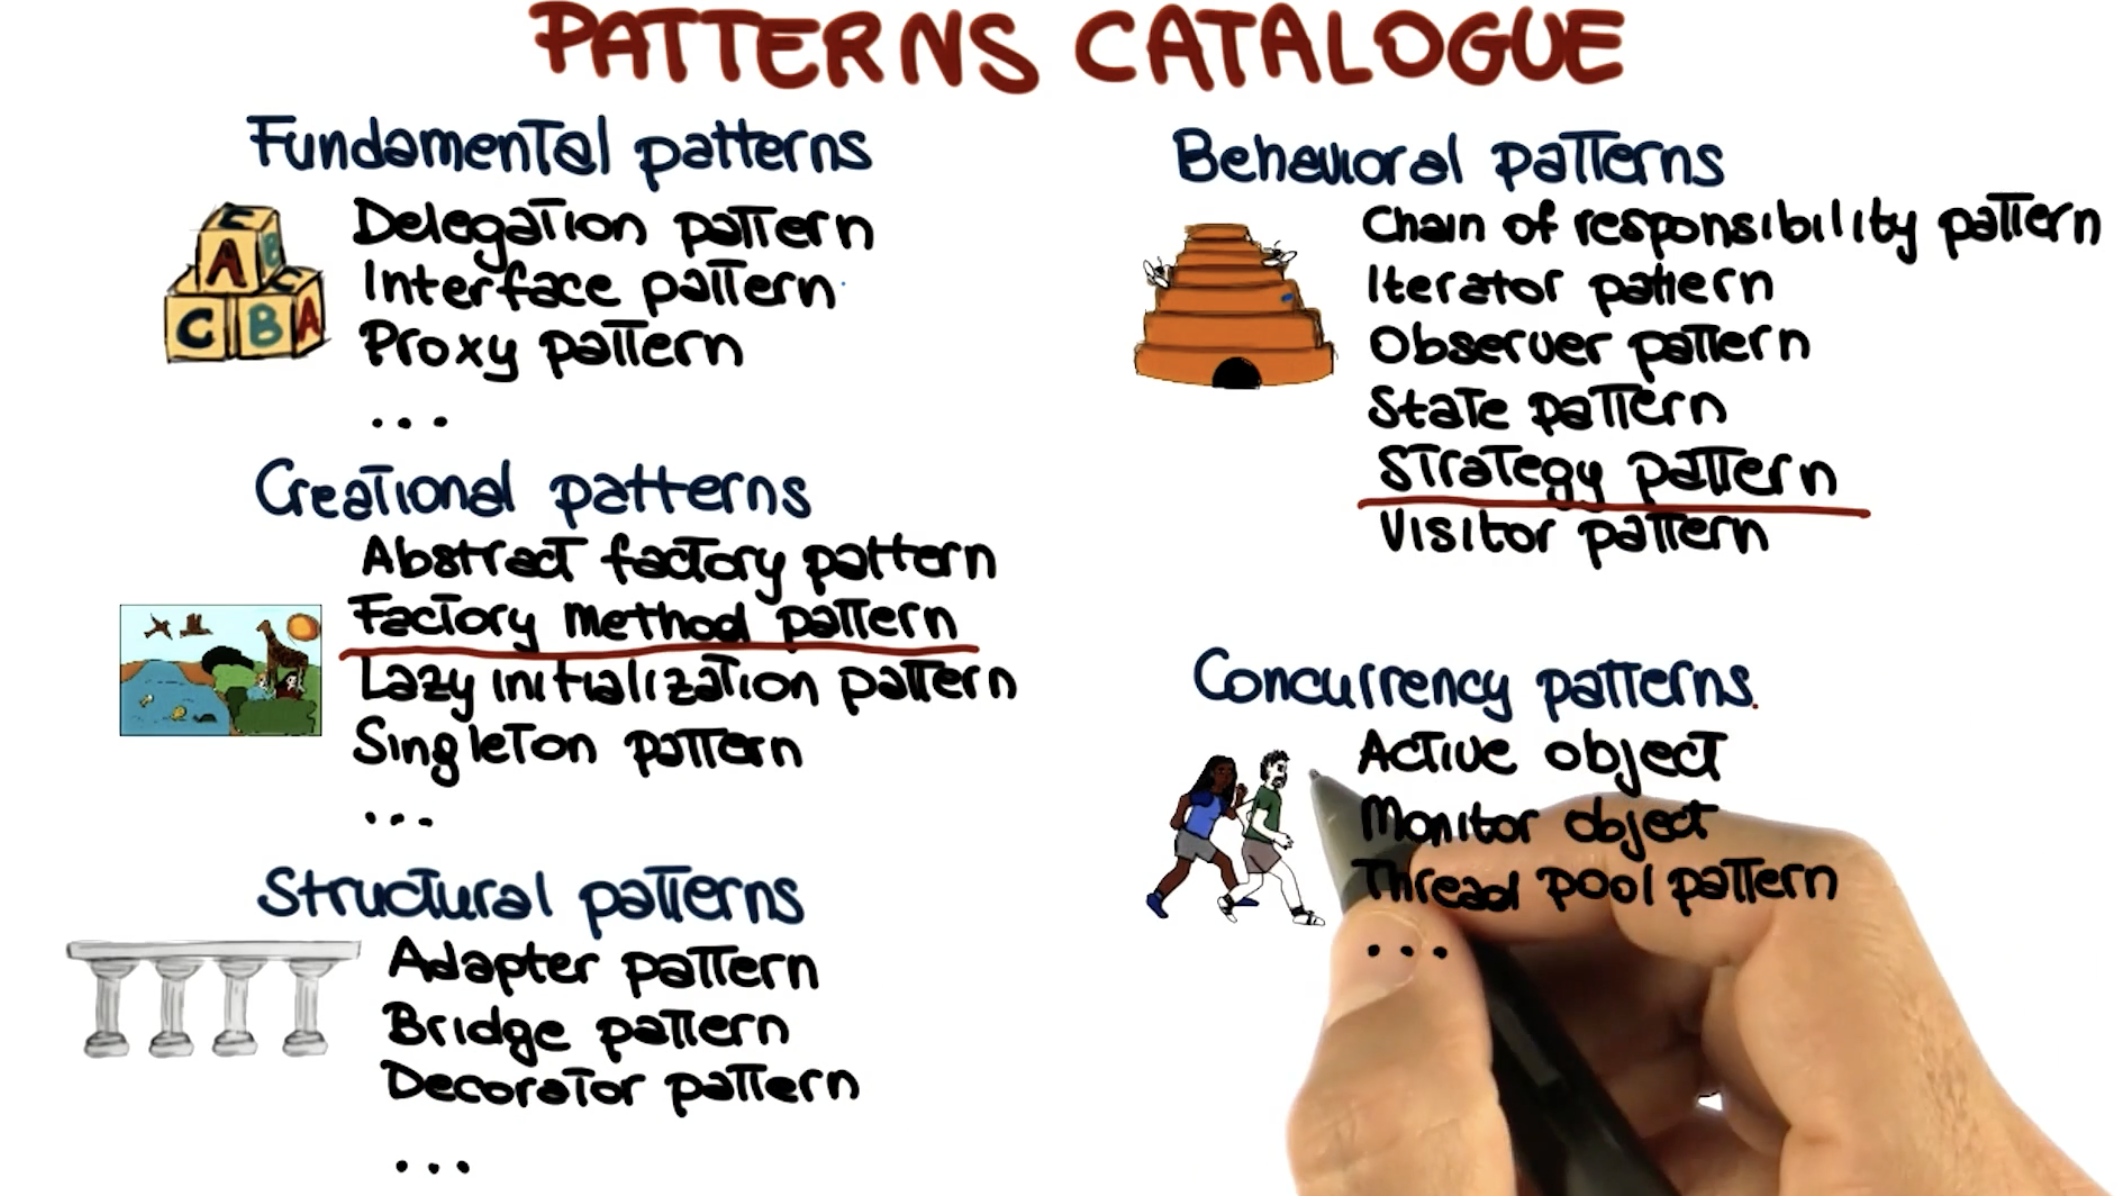 PATTERNS CATALOGUE
Fundamental patterns
Delegation pattern
Interface pattern
Proxy pattern
...
Creational patterns
Abstract factory pattern
Factory method pattern
Lazy initialization pattern
Singleton pattern
...
Structural patterns
Adapter pattern
Bridge pattern
Decorator pattern
...
Behavioral patterns
Chain of responsibility pattern
Iterator pattern
Observer pattern
State pattern
Strategy pattern
Visitor pattern
Concurrency patterns
Active object
Monitor object
Thread pool pattern
...
E
A B C
C B A